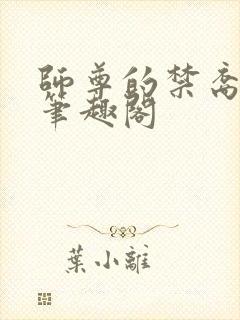 師尊的禁脔
筆趣閣
葉小離